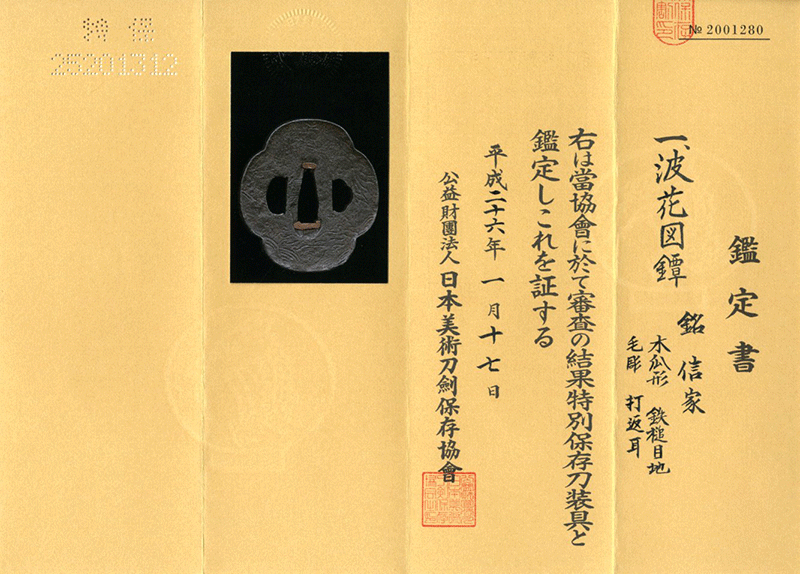 № 2001280
鑑定書
一、波花図鐔
銘 信家
木瓜形 鉄槌目地
毛彫 打返耳
右は當協會に於て審査の結果特別保存刀装具と
鑑定しこれを証する
平成二十六年一月十七日
公益財團法人 日本美術刀劍保存協會
特保
25201312